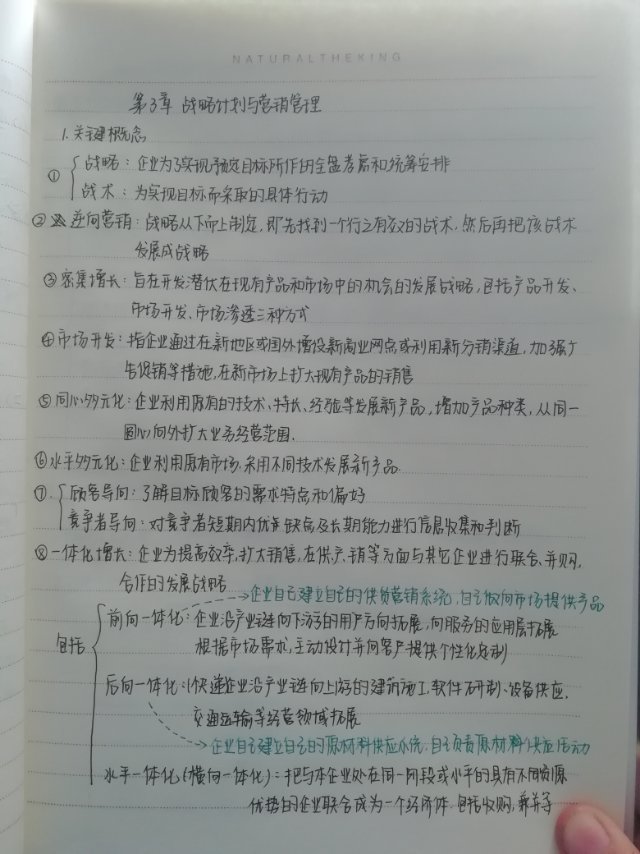 NATURALTHEKING
第3章 战略计划与营销管理
1.关键概念
① 战略：企业为了实现预定目标所作的全盘考虑和统筹安排
战术：为实现目标而采取的具体行动
② 逆向营销：战略从下而上制定，即先找到一个行之有效的战术，然后再把该战术
发展成战略
③ 密集增长：旨在开发潜伏在现有产品和市场中的机会的发展战略，包括产品开发、
市场开发、市场渗透三种方式
④ 市场开发：指企业通过在新地区或国外增设新商业网点或利用新分销渠道，加强广
告促销等措施，在新市场上扩大现有产品的销售
⑤ 同心多元化：企业利用原有的技术、特长、经验等发展新产品，增加产品种类，从同一
圆心向外扩大业务经营范围.
⑥ 水平多元化：企业利用原有市场，采用不同技术发展新产品.
⑦ 顾客导向：了解目标顾客的需求特点和偏好
竞争者导向：对竞争者短期内优缺点及长期能力进行信息收集和判断
⑧ 一体化增长：企业为提高效率，扩大销售，在供、产、销等方面与其它企业进行联合、并购，
合作的发展战略
企业自己建立自己的供货营销系统，自己做向市场提供产品
包括
前向一体化：企业沿产业链向下游的用户方向拓展，向服务的应用展拓展
根据市场需求，主动设计并向客户提供个性化定制
后向一体化：快递企业沿产业链向上游的建筑施工、软件研制、设备供应、
交通运输等经营领域拓展
企业自己建立自己的原材料供应系统，自己负责原材料供应活动
水平一体化(横向一体化)：把与本企业处在同一阶段或水平的具有不同资源
优势的企业联合成为一个经济体，包括收购，兼并等